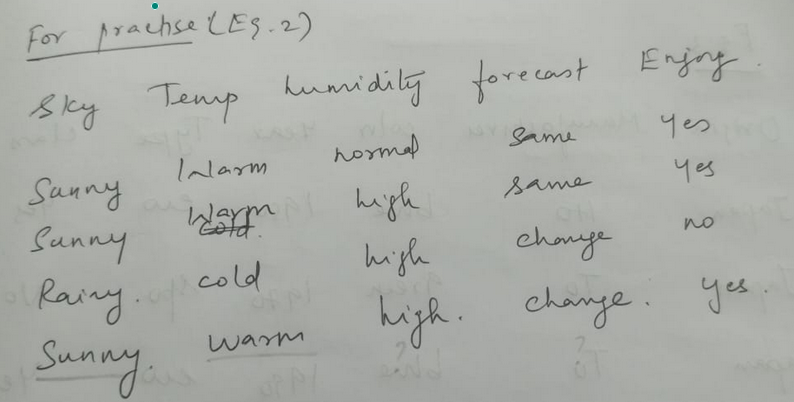 For practise (Eg. 2)
Sky Temp humidity forecast Enjoy.
Sunny Warm normal same yes
Sunny Warm high same yes
Rainy. cold high change no
Sunny. warm high. change. yes.